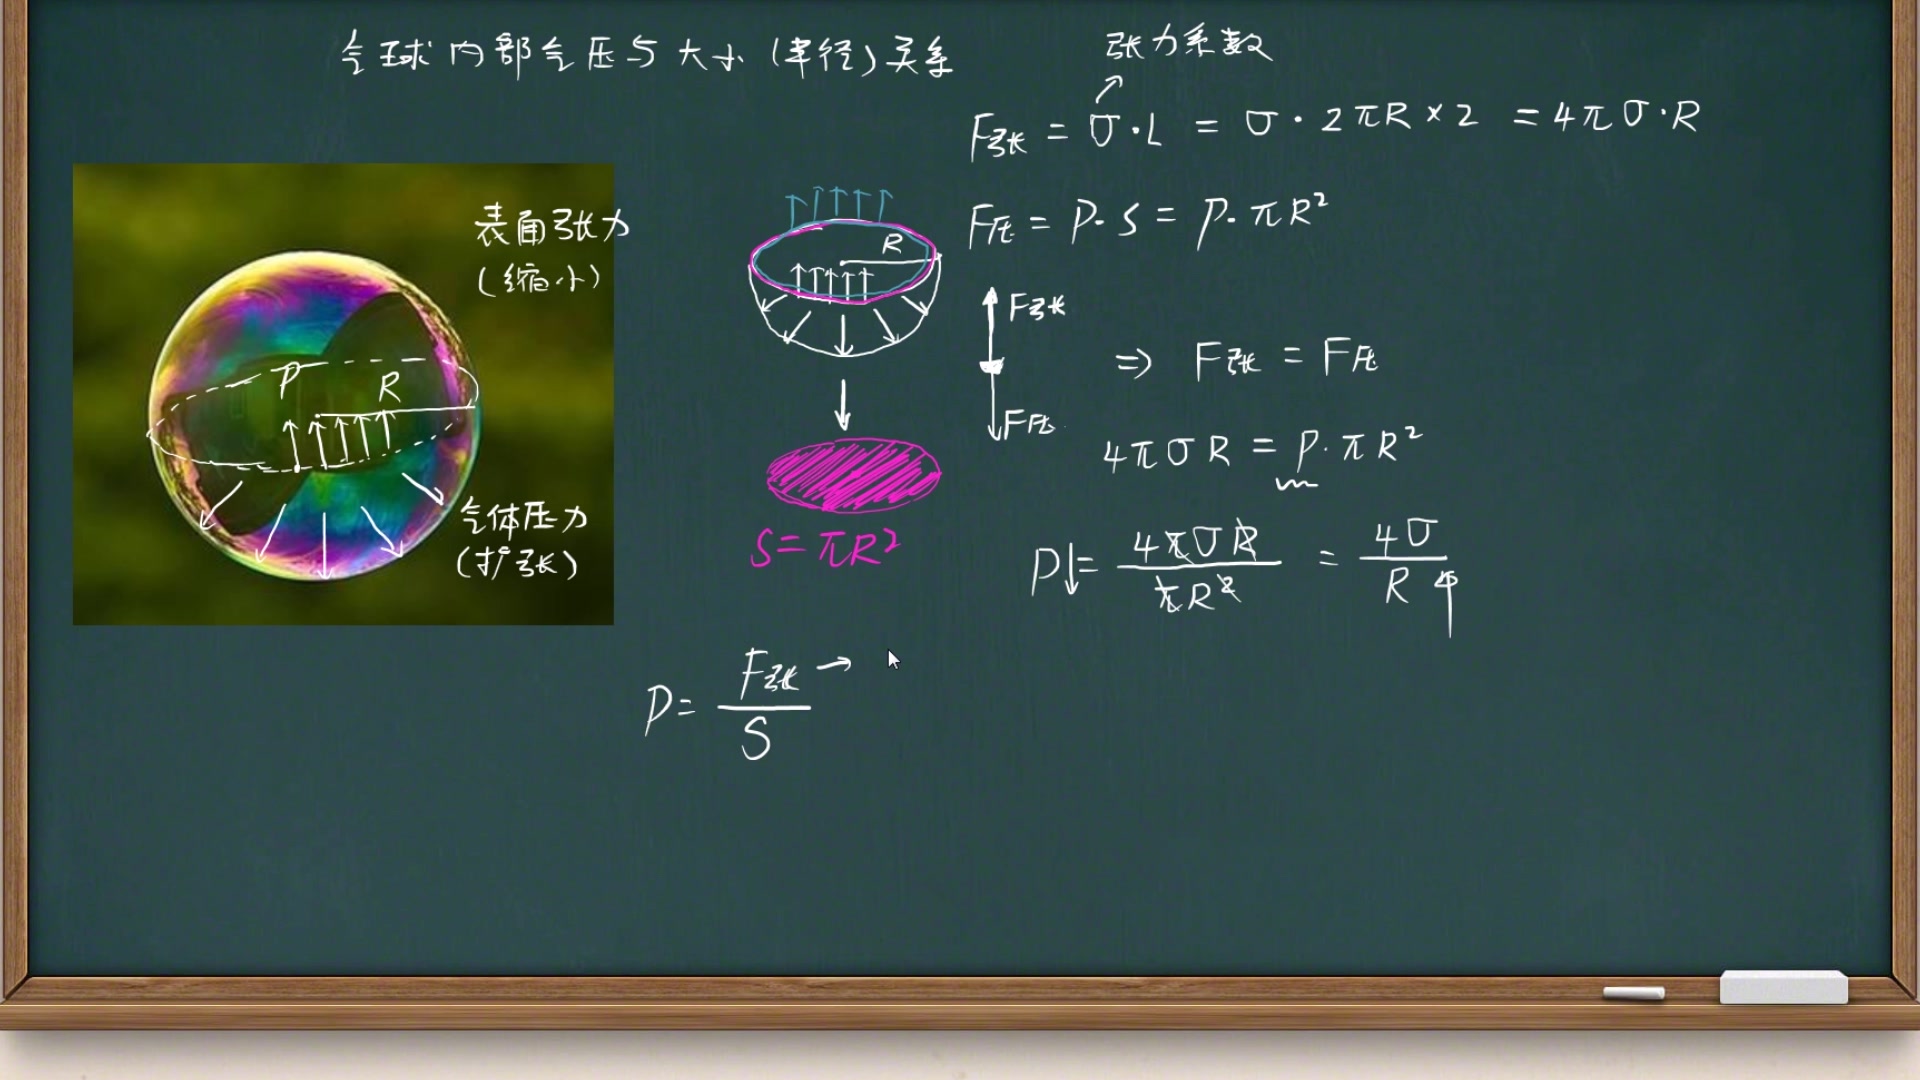 气球内部气压与大小(半径)关系
张力系数
F张 = σ·L = σ·2πR×2 = 4πσ·R
F压 = P·S = P·πR²
表面张力
(缩小)
P
R
气体压力
(扩张)
R
S=πR²
F张
F压
⇒ F张 = F压
4πσR = P·πR²
P↓= 4πσR / πR² = 4σ / R ↑
P= F张 / S →